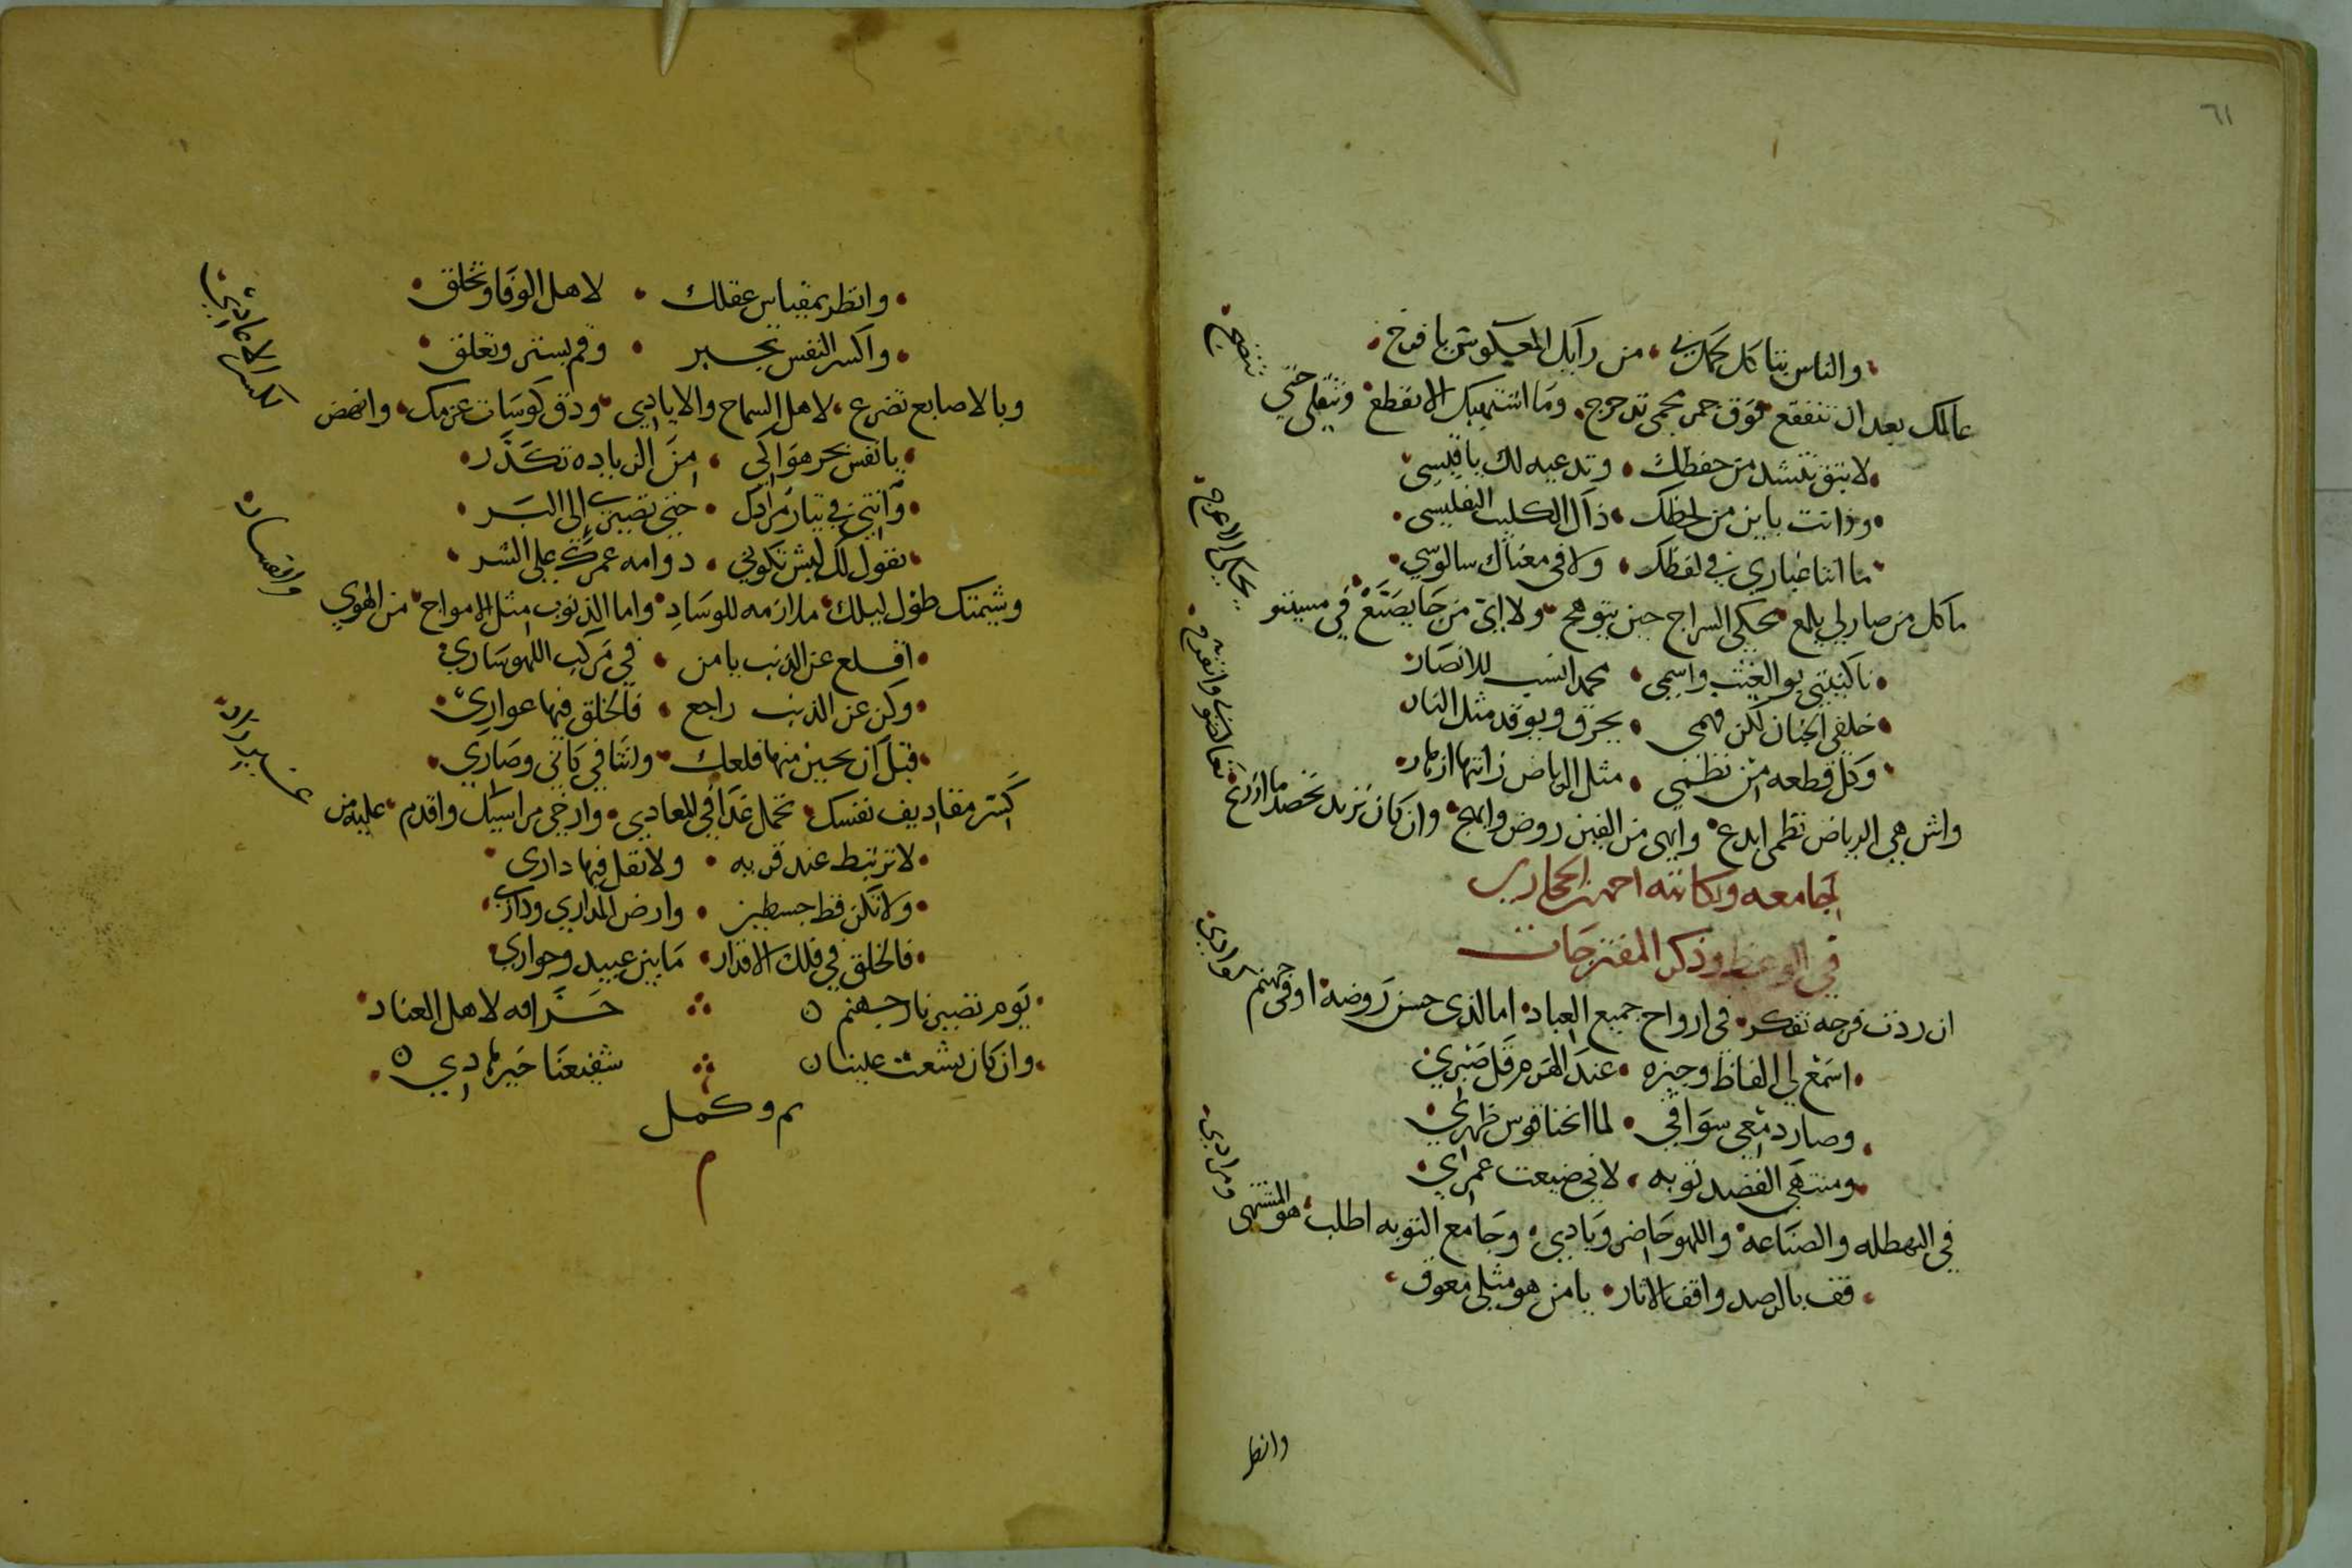 ٦١
والناس بنا كل من رايك يا فرخ
عالك بعد ان تتفقع فوق جمر محمى تدحرج وما اشتهيك الا تقطع وتتقلى حتى
تنضج
لا بتق تنشد من حفظك وتدعيه لك يا قيسى
وذا انت باين من لحظك ذاك الكليب التفليسى
ما انتا غبارى فى لفظك ولا فى معناك سالوسى
ما كل من صار لى يلمع يحكى السراج حين يتوهج ولا اى من جا يصنع فى مسيتو
يحكى الاعرج
نا كنيتى بو الغيث واسمى محمد انسب للانصار
خلقى الجنان لكن فهمى يحرق ويوقد مثل النار
وكل قطعه من نظمى مثل الرياض زانتها ازهار
واش هى الرياض نظمى ابدع وابهى من الفين روض وابهج وان كان تريد تحصد ما ازرع
تعا لعندى وانفرج
لجامعه وكاتبه احمد الحجازى
فى الوعظ وذكر المفترجات
ان ردت فرجه تفكر فى ارواح جميع العباد اما لذى حسن روضه او فى جهنم
كوادى
اسمع لى الفاظ وجيزه عند الهرم قل صبرى
وصار دمعى سواقى لما انحنا قوس ظهرى
ومنتهى القصد توبه لانى ضيعت عمرى
فى البهطله والصناعه واللهو حاضر وبادى وجامع التوبه اطلب هو المشتهى
ومرادى
قف بالرصد واقف الاثار يا من هو مثلى معوق
وانظر
وانظر بمقياس عقلك لاهل الوفا وتخلق
واكسر النفس تجبر وقم بستر وتعلق
وبالاصابع تضرع لاهل السماح والايادى ودق كوسات عزمك وانهض
لكسر الاعادى
يا نفس بحر هواكى من الزياده تكدر
وانتى فى تيار مرادك حتى تصيرى الى البر
نقول لك ليش تكونى دوامه عمرك على الشر
وشيمتك طول ليلك ملازمه للوساد واما الذنوب مثل الامواج من الهوى
وا فساد
اقلع عن الذنب يا من فى مركب اللهو سارى
وكن عن الذنب راجع فالخلق فيها عوارى
قبل ان يحين منها قلعك ولنتا فى كاتى وصارى
كسر مقاديف نفسك تحمل غدا فى المعادى وارخى مراسيك واقدم عليه من
غير زاد
لا ترتبط عند قريه ولا تقل فيها دارى
ولا تكن قط جسطين وارض المدارى ودارى
فالخلق فى فلك الاقدار ما بين عبيد وجوارى
يوم تصير نار جهنم حراقه لاهل العناد
وان كان بشعت علينا شفيعنا خير هادى
تم وكمل
م